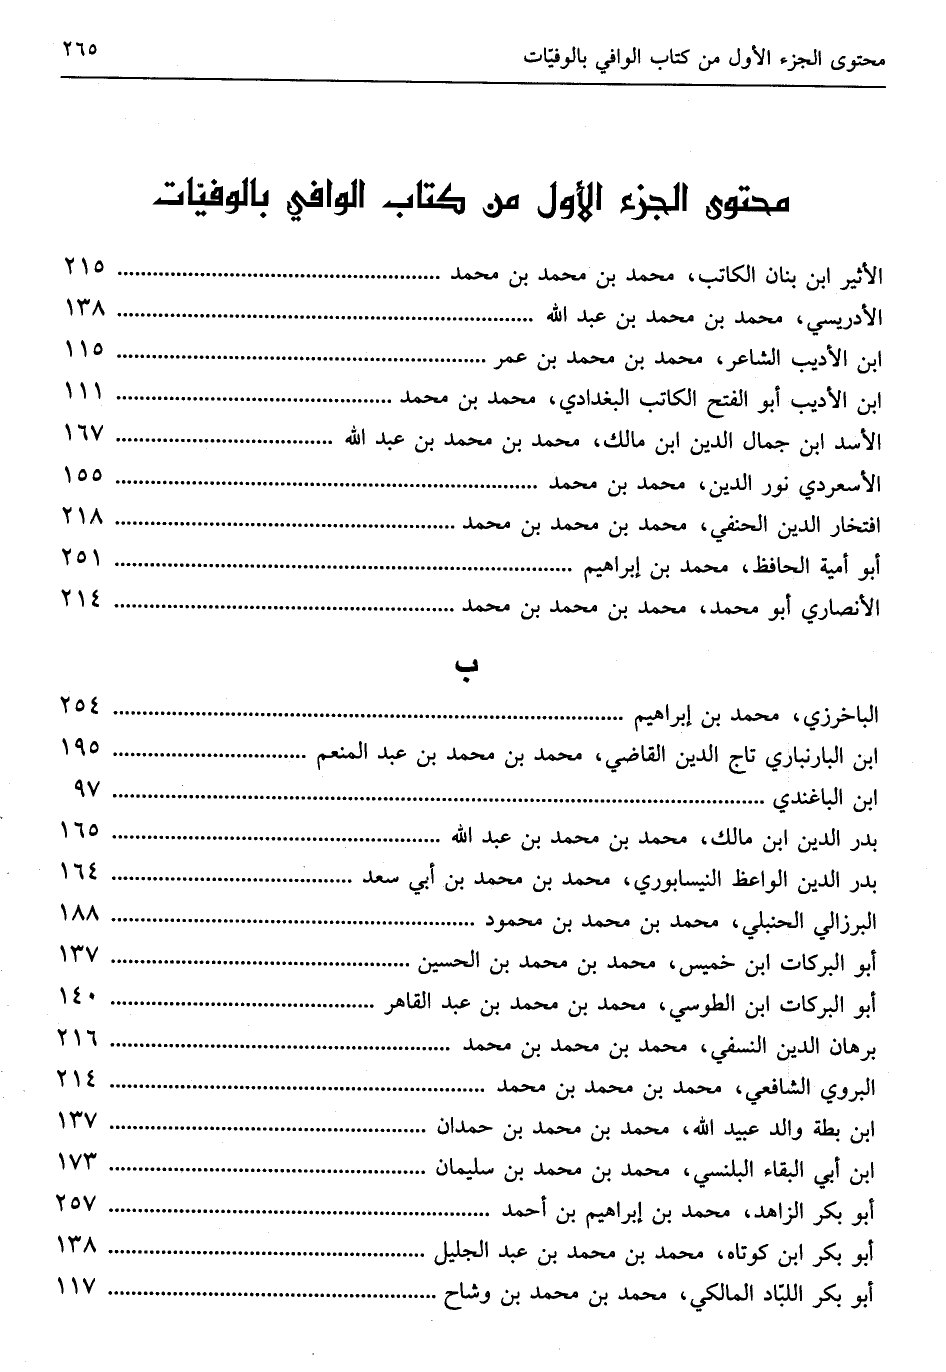 محتوى الجزء الأول من كتاب الوافي بالوفيّات ٢٦٥
محتوى الجزء الأول من كتاب الوافي بالوفيّات
الأثير ابن بنان الكاتب، محمد بن محمد بن محمد ........ ٢١٥
الأدريسي، محمد بن محمد بن عبد الله ........ ١٣٨
ابن الأديب الشاعر، محمد بن محمد بن عمر ........ ١١٥
ابن الأديب أبو الفتح الكاتب البغدادي، محمد بن محمد ........ ١١١
الأسد ابن جمال الدين ابن مالك، محمد بن محمد بن عبد الله ........ ١٦٧
الأسعردي نور الدين، محمد بن محمد ........ ١٥٥
افتخار الدين الحنفي، محمد بن محمد بن محمد ........ ٢١٨
أبو أمية الحافظ، محمد بن إبراهيم ........ ٢٥١
الأنصاري أبو محمد، محمد بن محمد بن محمد ........ ٢١٤
ب
الباخرزي، محمد بن إبراهيم ........ ٢٥٤
ابن البارنباري تاج الدين القاضي، محمد بن محمد بن عبد المنعم ........ ١٩٥
ابن الباغندي ........ ٩٧
بدر الدين ابن مالك، محمد بن محمد بن عبد الله ........ ١٦٥
بدر الدين الواعظ النيسابوري، محمد بن محمد بن أبي سعد ........ ١٦٤
البرزالي الحنبلي، محمد بن محمد بن محمود ........ ١٨٨
أبو البركات ابن خميس، محمد بن محمد بن الحسين ........ ١٣٧
أبو البركات ابن الطوسي، محمد بن محمد بن عبد القاهر ........ ١٤٠
برهان الدين النسفي، محمد بن محمد بن محمد ........ ٢١٦
البروي الشافعي، محمد بن محمد بن محمد ........ ٢١٤
ابن بطة والد عبيد الله، محمد بن محمد بن حمدان ........ ١٣٧
ابن أبي البقاء البلنسي، محمد بن محمد بن سليمان ........ ١٧٣
أبو بكر الزاهد، محمد بن إبراهيم بن أحمد ........ ٢٥٧
أبو بكر ابن كوتاه، محمد بن محمد بن عبد الجليل ........ ١٣٨
أبو بكر اللبّاد المالكي، محمد بن محمد بن وشاح ........ ١١٧